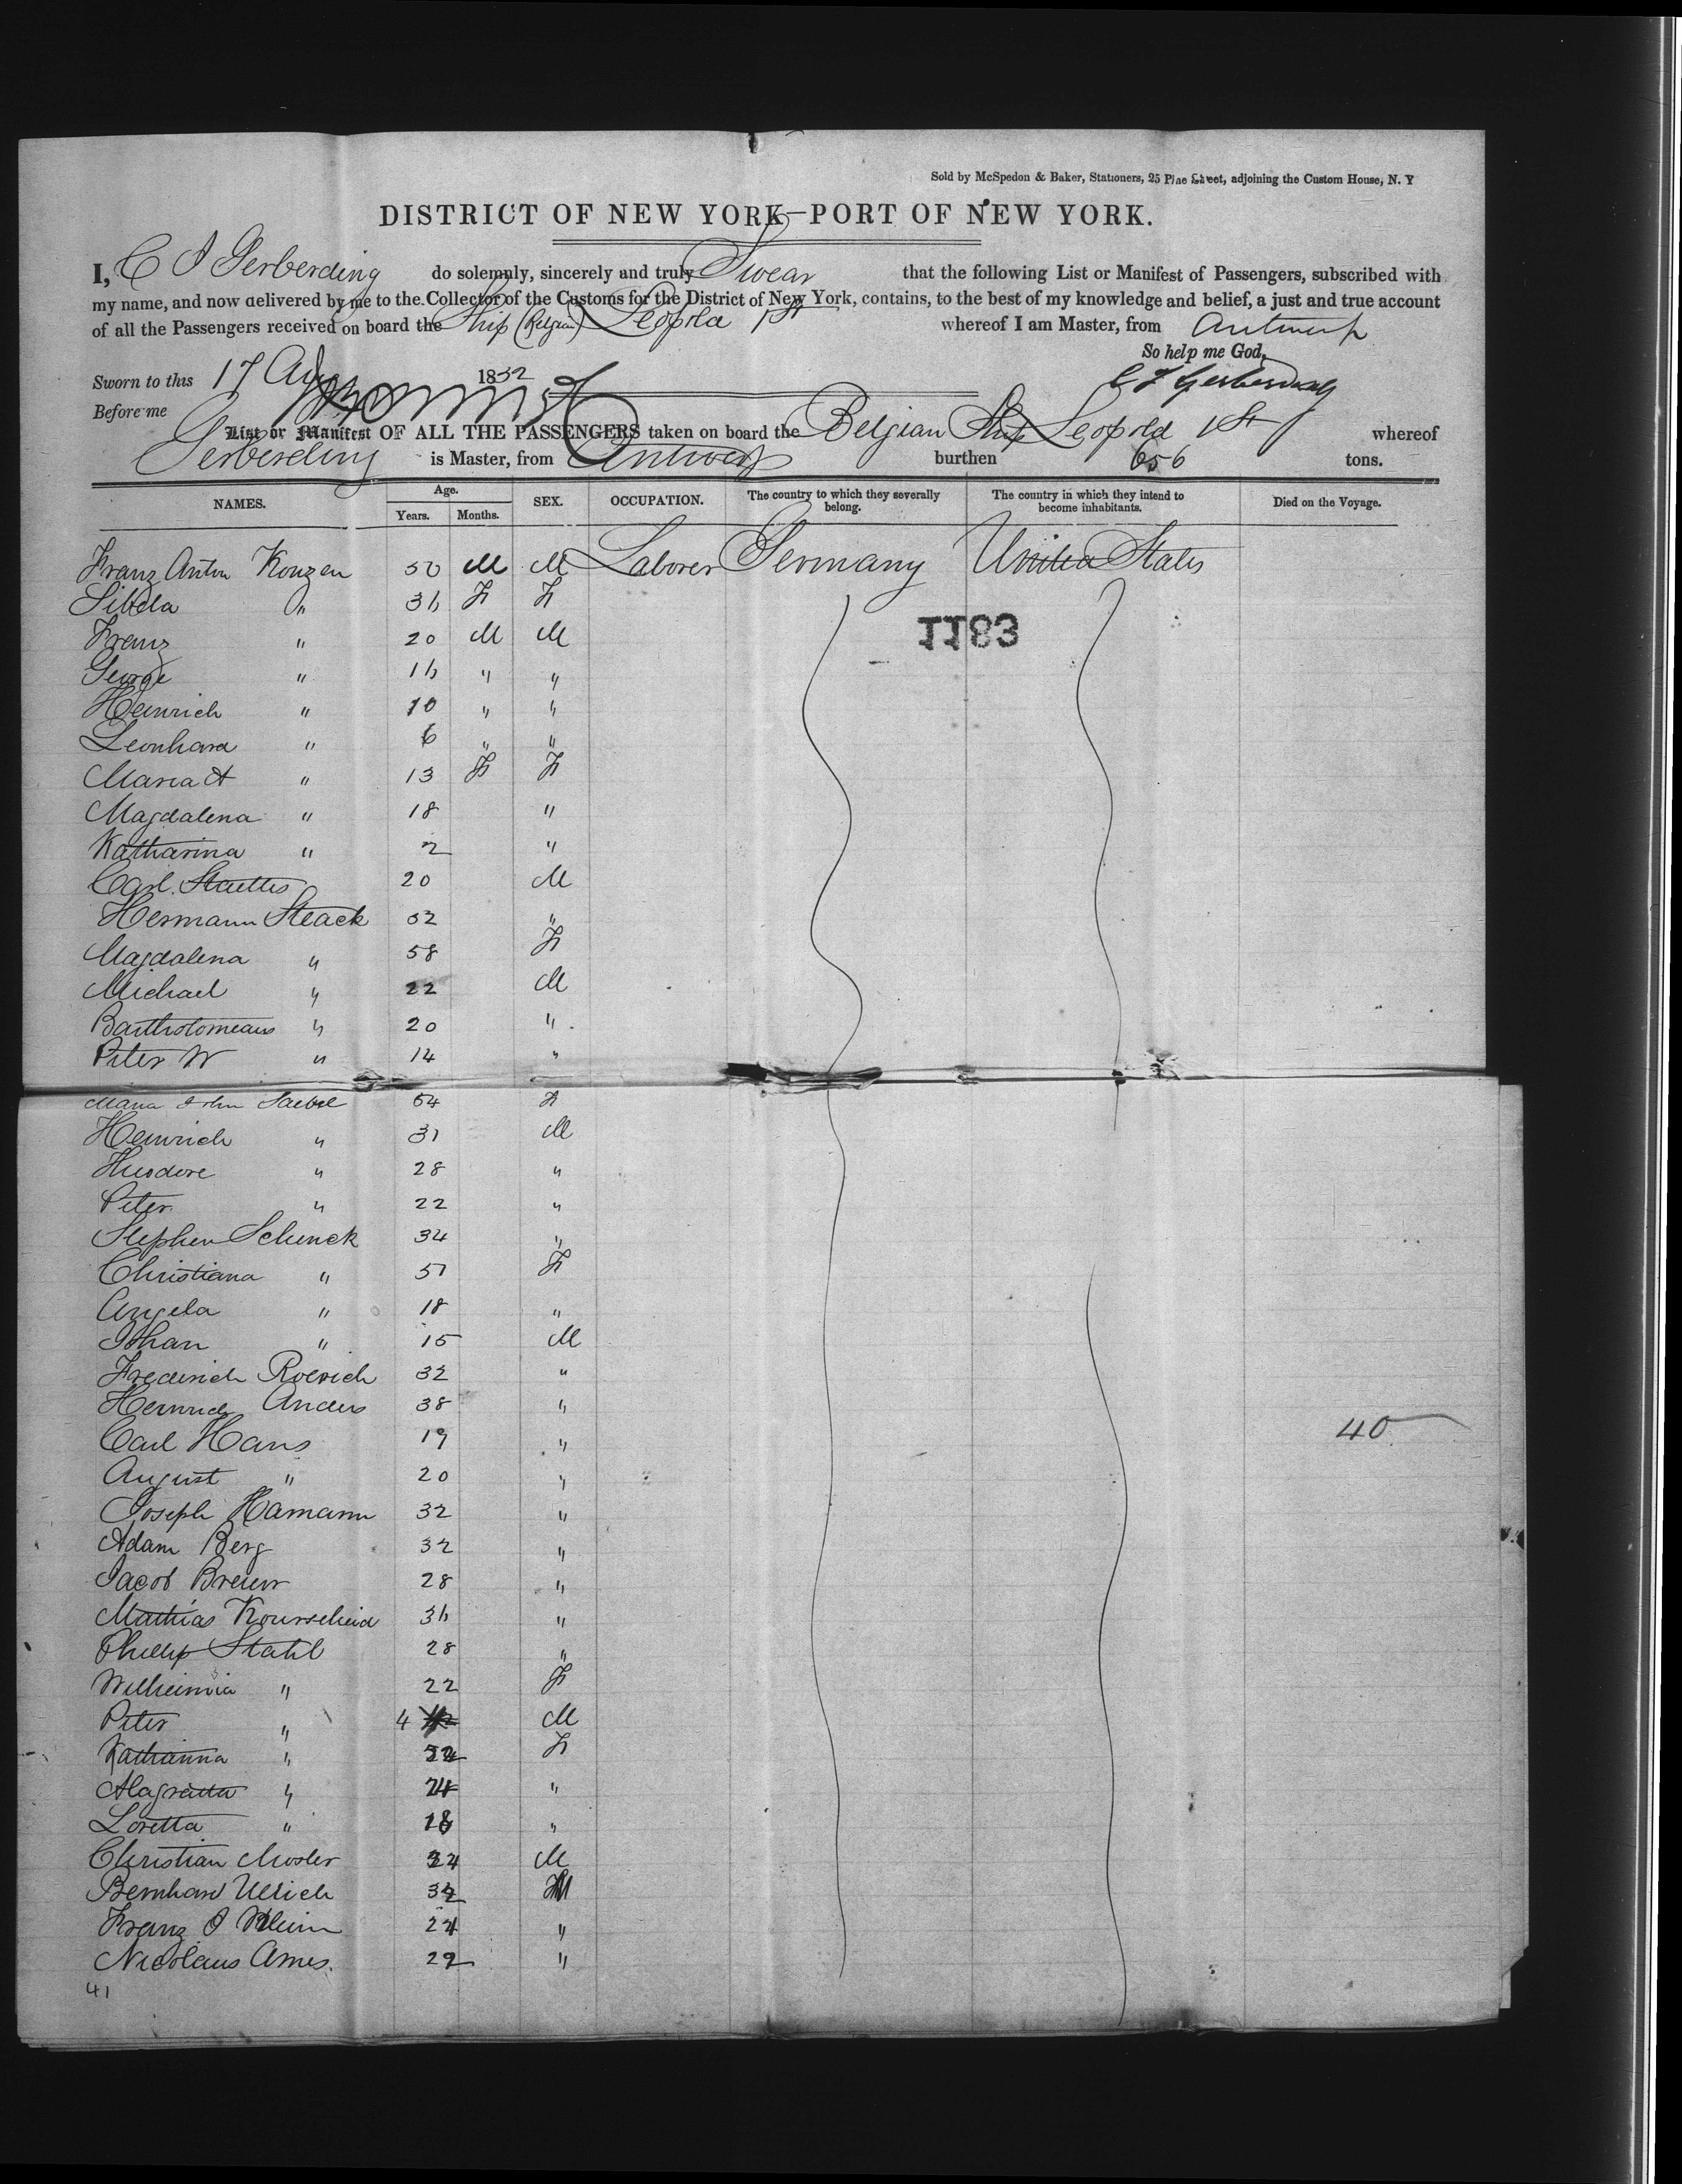 Sold by McSpedon & Baker, Stationers, 25 Pine Street, adjoining the Custom House, N. Y
DISTRICT OF NEW YORK—PORT OF NEW YORK.
I, C J Gerberding do solemnly, sincerely and truly Swear that the following List or Manifest of Passengers, subscribed with
my name, and now delivered by me to the Collector of the Customs for the District of New York, contains, to the best of my knowledge and belief, a just and true account
of all the Passengers received on board the Ship (Belgian) Leopold 1st whereof I am Master, from Antwerp
So help me God,
Sworn to this 17 Aug 1852
C J Gerberding
Before me
List or Manifest OF ALL THE PASSENGERS taken on board the Belgian Ship Leopold 1st whereof
Gerberding is Master, from Antwerp burthen 656 tons.
NAMES. Age. Years. Months. SEX. OCCUPATION. The country to which they severally belong. The country in which they intend to become inhabitants. Died on the Voyage.
Franz Anton Konzen 50 M M Laborer Germany United States
Sibela " 36 F F
1183
Franz " 20 M M
George " 16 " "
Heinrich " 10 " "
Leonhard " 6 " "
Maria A " 13 F F
Magdalena " 18 "
Katharina " 2 "
Carl 20 M
Hermann Steack 52 "
Magdalena " 58 F
Michael " 22 M
Bartholomeaus " 20 "
Peter W " 14 "
Maria John 54 F
Heinrich " 31 M
Theodore " 28 "
Peter " 22 "
Stephen Schenck 34 "
Christiana " 51 F
Angela " 18 "
Johan " 15 M
Frederich Roerich 32 "
Heinrich Anders 38 "
Carl Hans 19 "
40
August " 20 "
Joseph Hamann 32 "
Adam Berg 32 "
Jacob Breuer 28 "
Mathias 36 "
Phillip Stahl 28 "
Wilhelmia " 22 F
Peter " 4 M
Katharina " F
" 24 "
Loretta " 18 "
Christian Mosler 24 M
Bernhard Ullrich 32 M
Franz J 24 "
Nicolaus Ames. 22 "
41